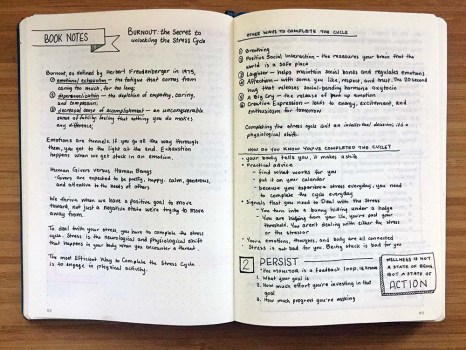 BOOK NOTES
BURNOUT: the Secret to
unlocking the Stress Cycle
Burnout, as defined by Herbert Freudenberger in 1975,
① emotional exhaustion — the fatigue that comes from
caring too much, for too long;
② depersonalization — the depletion of empathy, caring,
and compassion;
③ decreased sense of accomplishment — an unconquerable
sense of futility: feeling that nothing you do makes
any difference;
Emotions are tunnels. If you go all the way through
them, you get to the light at the end. Exhaustion
happens when we get stuck in an emotion.
Human Givers versus Human Beings
- Givers are expected to be pretty, happy, calm, generous,
and attentive to the needs of others
We thrive when we have a positive goal to move
toward, not just a negative state we're trying to move
away from.
To deal with your stress, you have to complete the stress
cycle. Stress is the neurological and physiological shift
that happens in your body when you encounter a threat.
The most Efficient Way to Complete the Stress Cycle
is to engage in physical activity.
OTHER WAYS TO COMPLETE THE CYCLE
① Breathing
② Positive Social Interaction — the reassures your brain that the
world is a safe place
③ Laughter — helps maintain social bonds and regulates emotions
④ Affection — with someone you like, respect, and trust. The 20 second
hug that releases social-bonding hormone oxytocin
⑤ A Big Cry — the release of pent up emotion
⑥ Creative Expression — leads to energy, excitement, and
enthusiasm for tomorrow
Completing the stress cycle isn't an intellectual decision; it's a
physiological shift.
HOW DO YOU KNOW YOU'VE COMPLETED THE CYCLE?
- your body tells you, it makes a shift
- Practical advice
- find what works for you
- put it on your calendar
- because you experience stress everyday, you need
to complete the cycle everyday
- Signals that you need to Deal with The Stress
- You turn into a bunny hiding under a hedge
- You are helping from your life, you're past your
threshold. You aren't dealing with either the stress
or the stressor
- Your emotions, thoughts, and body are all connected
Stress is not bad for you. Being stuck is bad for you
2 PERSIST
The MONITOR is a feedback loop, it knows
1. What your goal is
2. How much effort you're investing in that
goal
3. How much progress you're making
WELLNESS IS NOT
A STATE OF BEING
BUT A STATE OF
ACTION